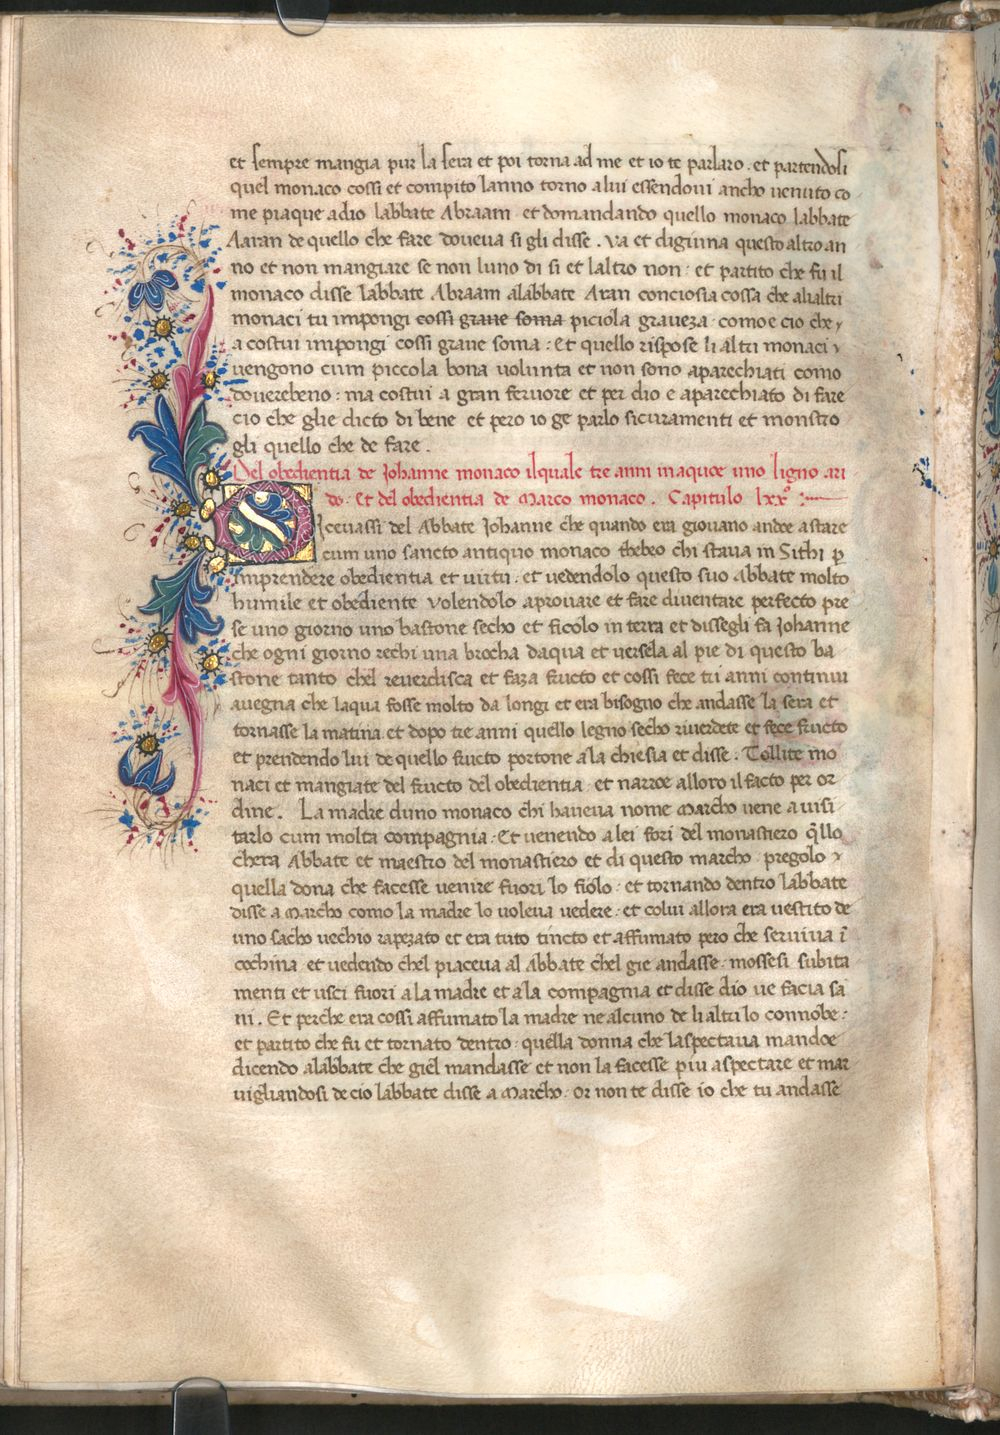 et sempre mangia pur la sera et poi torna ad me et io te parlaro. et partendosi
quel monaco cossi et compito lanno torno a lui essendoui ancho uenuto co
me piaque adio labbate Abraam. et domandando quello monaco labbate
Aaran de quello che fare doueua si gli disse. Va et digiuna questo altro an
no et non mangiare se non luno di si et laltro non: et partito che fu il
monaco disse labbate Abraam alabbate Aran conciosia cossa che alialtri
monaci tu impongi cossi graue soma piciola graueza. como e cio che
a costui impongi cossi graue soma: Et quello rispose li altri monaci
uengono cum piccola bona uolunta et non sono aparechiati como
douerebeno: ma costui a gran feruore et per dio e aparechiato di fare
cio che glie dicto di bene et pero io ge parlo sicuramenti et monstro
gli quello che de fare.
Del obedientia de Johanne monaco il quale tre anni inaquoe uno ligno ari
do. Et del obedientia de Marco monaco. Capitulo lxxº:
Diceuassi del Abbate Johanne che quando era giouano andoe a stare
cum uno sancto antiquo monaco thebeo chi staua in Sithi p
imprendere obedientia et uirtu. et uedendolo questo suo abbate molto
humile et obediente volendolo aprouare et fare diuentare perfecto pre
se uno giorno uno bastone secho et ficolo in terra et dissegli fa Johanne
che ogni giorno rechi una brocha daqua et uersela al pie di questo ba
stone tanto chel reuerdisca et faza fructo et cossi fece tri anni continui
auegna che laqua fosse molto da longi et era bisogno che andasse la sera et
tornasse la matina. et dopo tre anni quello legno secho riuerdete et fece fructo
et prendendo lui de quello fructo portone a la chiesia et disse. Tollite mo
naci et mangiate del fructo del obedientia. et narroe alloro il facto per or
dine. La madre duno monaco chi haueua nome Marcho uene a uisi
tarlo cum molta compagnia. Et uenendo a lei fori del monastiero qllo
chera Abbate et maestro del monastiero et di questo marcho. pregolo
quella dona che facesse uenire fuori lo fiolo: et tornando dentro labbate
disse a Marcho como la madre lo voleua uedere: et colui allora era uestito de
uno sacho uechio rapezato et era tuto tincto et affumato pero che seruiua ĩ
cochina et uedendo chel piaceua al Abbate chel gie andasse. mossesi subita
menti et usci fuori a la madre et a la compagnia et disse dio ue facia sa
ni. Et perche era cossi affumato la madre ne alcuno de li altri lo connobe:
et partito che fu et tornato dentro: quella donna che laspectaua mandoe
dicendo alabbate che giel mandasse et non la facesse piu aspectare et mar
uigliandosi de cio labbate disse a Marcho. or non te disse io che tu andasse